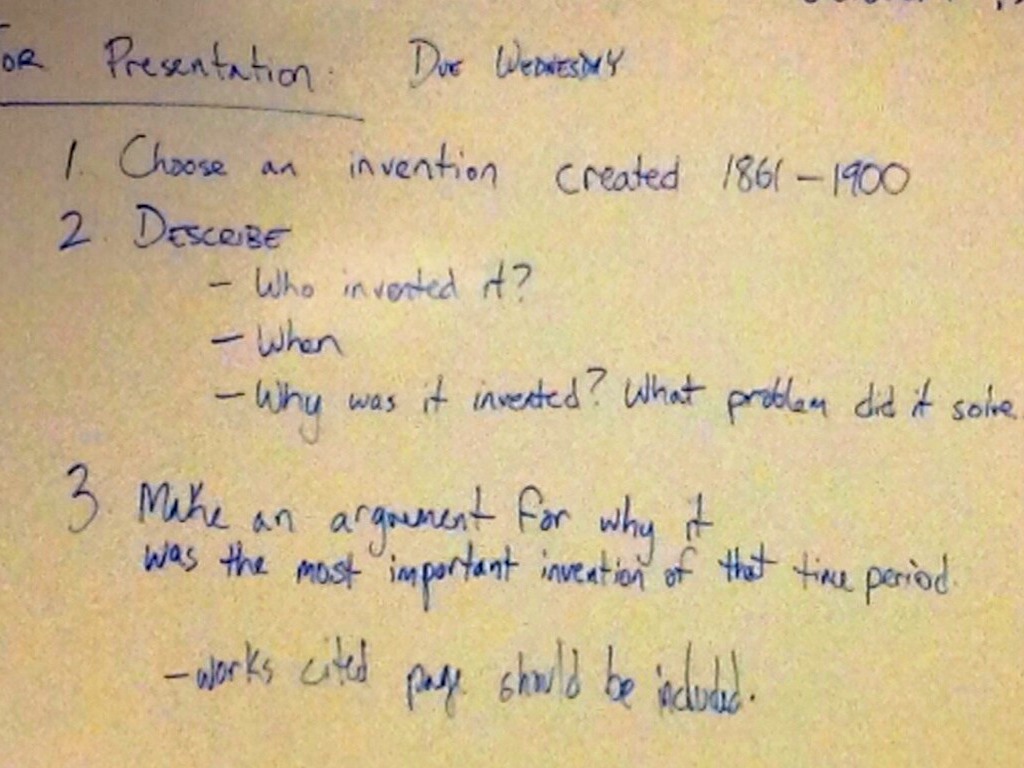 For Presentation: Due Wednesday
1. Choose an invention created 1861-1900
2. Describe
- Who invented it?
- When
- Why was it invented? What problem did it solve
3 Make an argument for why it
was the most important invention of that time period.
- works cited page should be included.